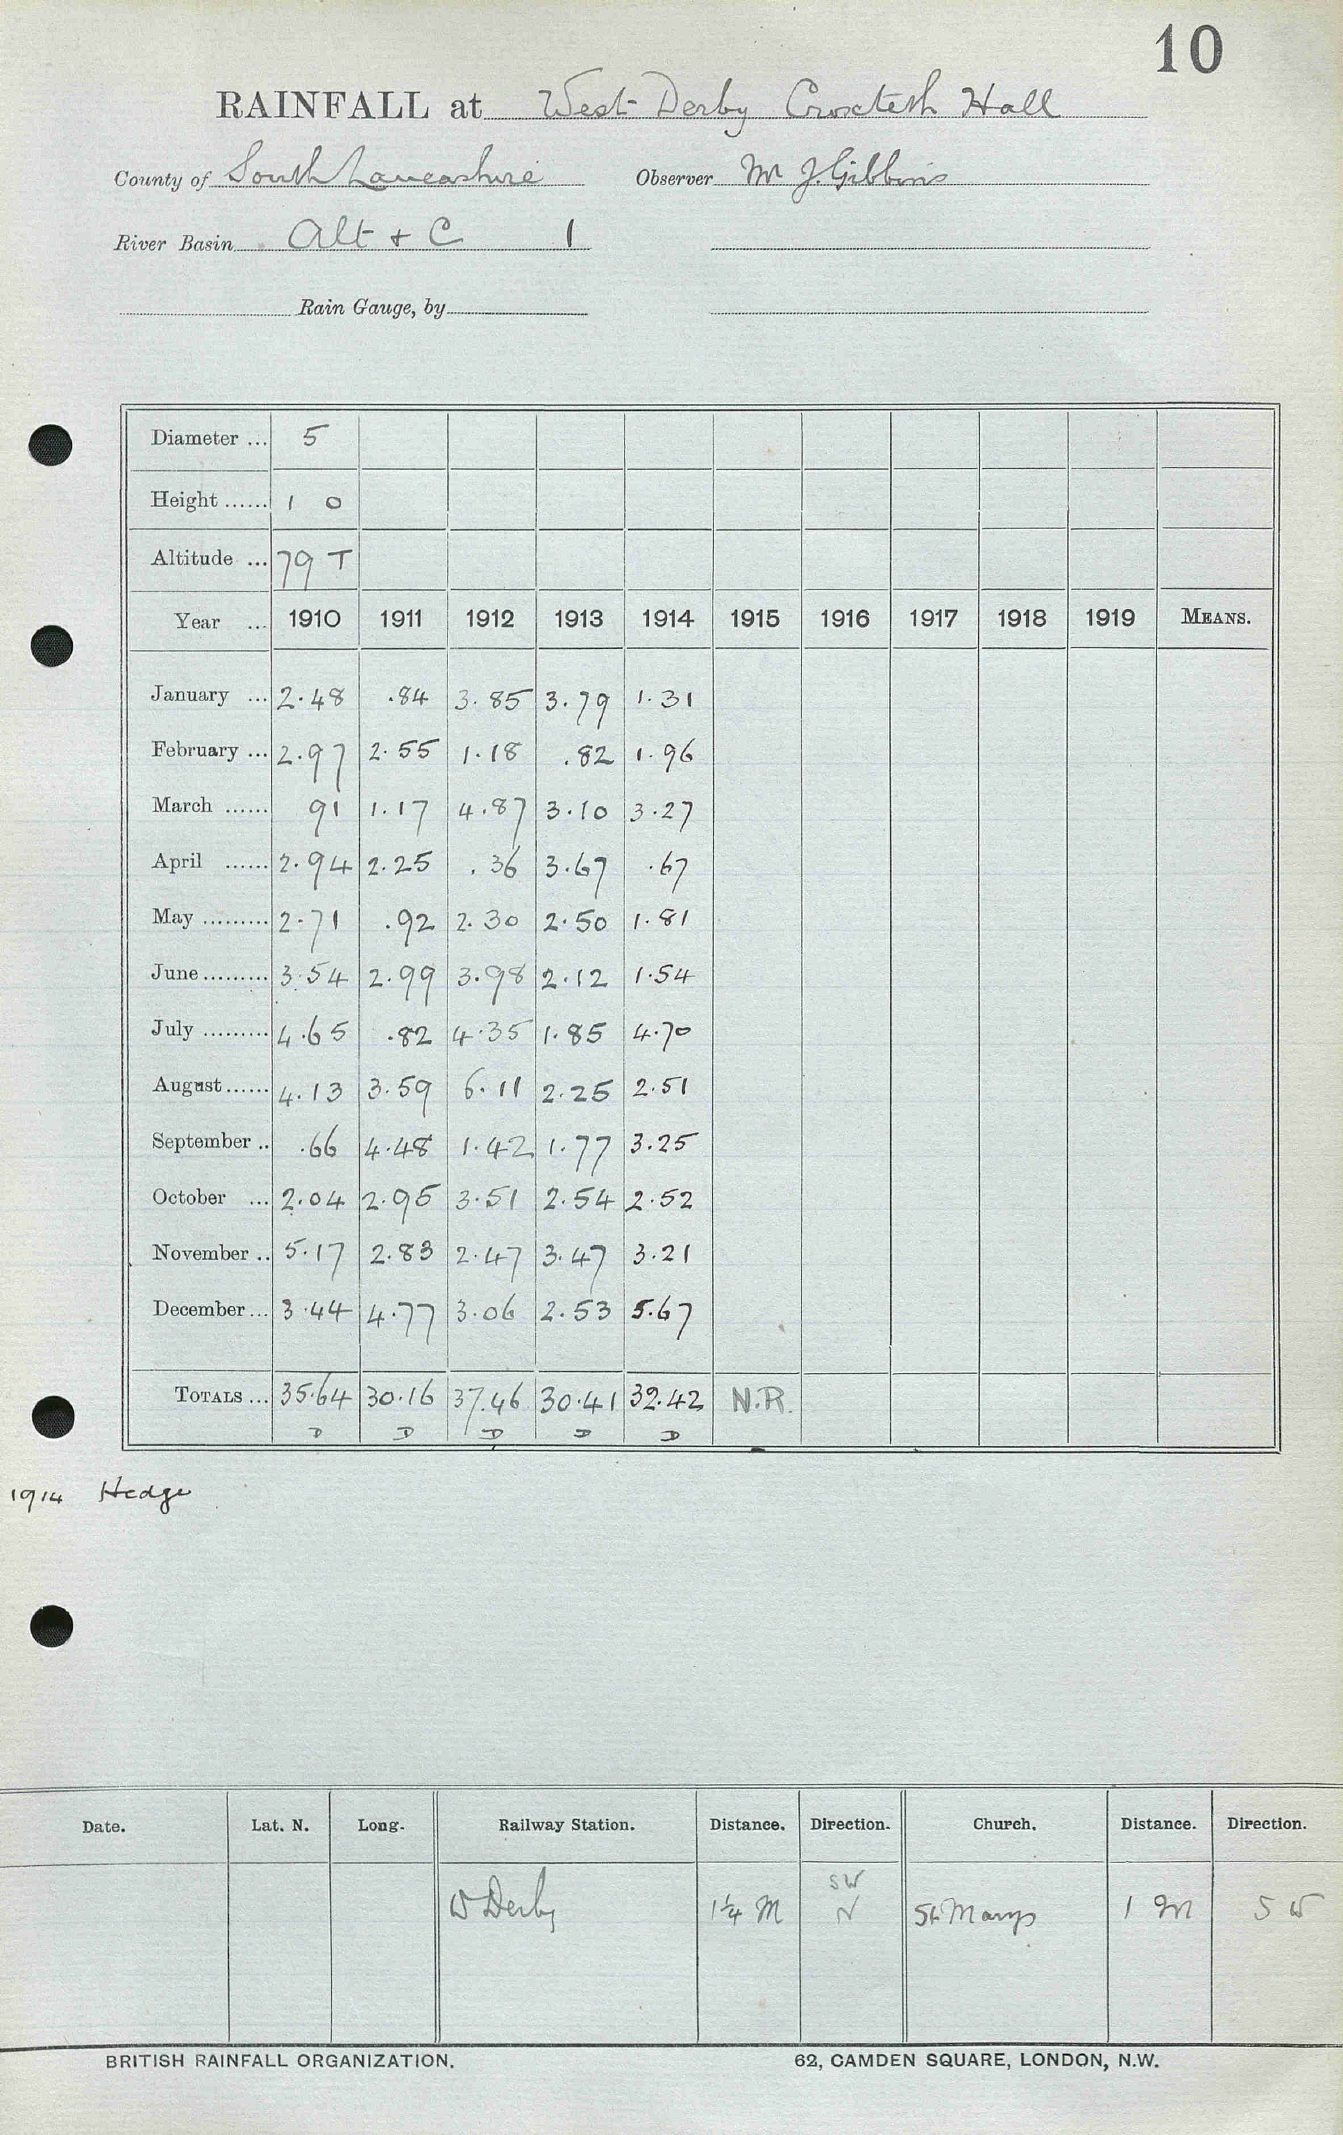 10
RAINFALL at West Derby Croxteth Hall
County of South Lancashire Observer Mr J. Gibbins
River Basin Alt + C 1
Rain Gauge, by
Diameter ... 5
Height ...... 1 0
Altitude ... 79 T
Year ... 1910 1911 1912 1913 1914 1915 1916 1917 1918 1919 MEANS.
January ... 2.48 .84 3.85 3.79 1.31
February ... 2.97 2.55 1.18 .82 1.96
March ...... 91 1.17 4.87 3.10 3.27
April ...... 2.94 2.25 .36 3.67 .67
May ......... 2.71 .92 2.30 2.50 1.81
June ......... 3.54 2.99 3.98 2.12 1.54
July ......... 4.65 .82 4.35 1.85 4.70
August ...... 4.13 3.59 6.11 2.25 2.51
September .. .66 4.48 1.42 1.77 3.25
October ... 2.04 2.95 3.51 2.54 2.52
November .. 5.17 2.83 2.47 3.47 3.21
December ... 3.44 4.77 3.06 2.53 5.67
TOTALS ... 35.64 30.16 37.46 30.41 32.42 N.R.
D D D D D
1914 Hedge
Date. Lat. N. Long. Railway Station. Distance. Direction. Church. Distance. Direction.
SW
W Derby 1¼ M N St Marys 1 M S W
BRITISH RAINFALL ORGANIZATION. 62, CAMDEN SQUARE, LONDON, N.W.